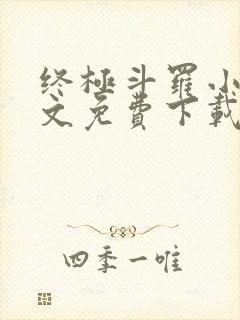 终极斗罗小
文免費下載
四季一唯